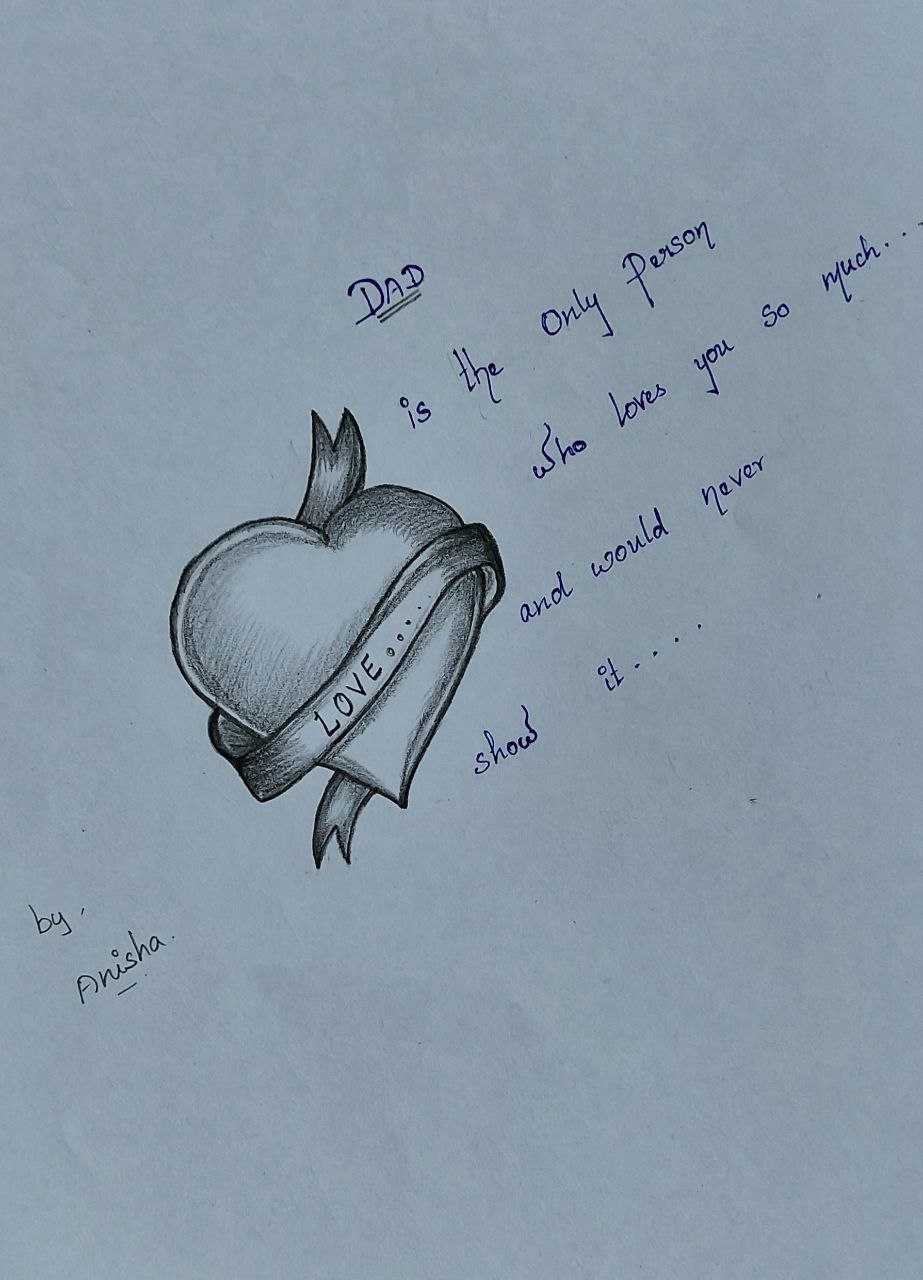 DAD
is the Only Person
who loves you so much...
and would never
show it....
LOVE.....
by,
Anisha.